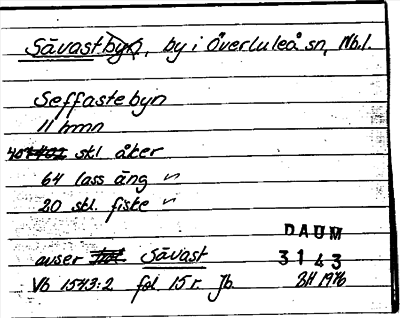 Sävastbyn, by i Överluleå sn, Nb.l.
Seffastebyn
11 hmn
skl åker
64 lass äng "
20 skl. fiske "
DAUM
3143
avser Sävast
Vb 1543:2 fol. 15 r. Jb.
BH 1976